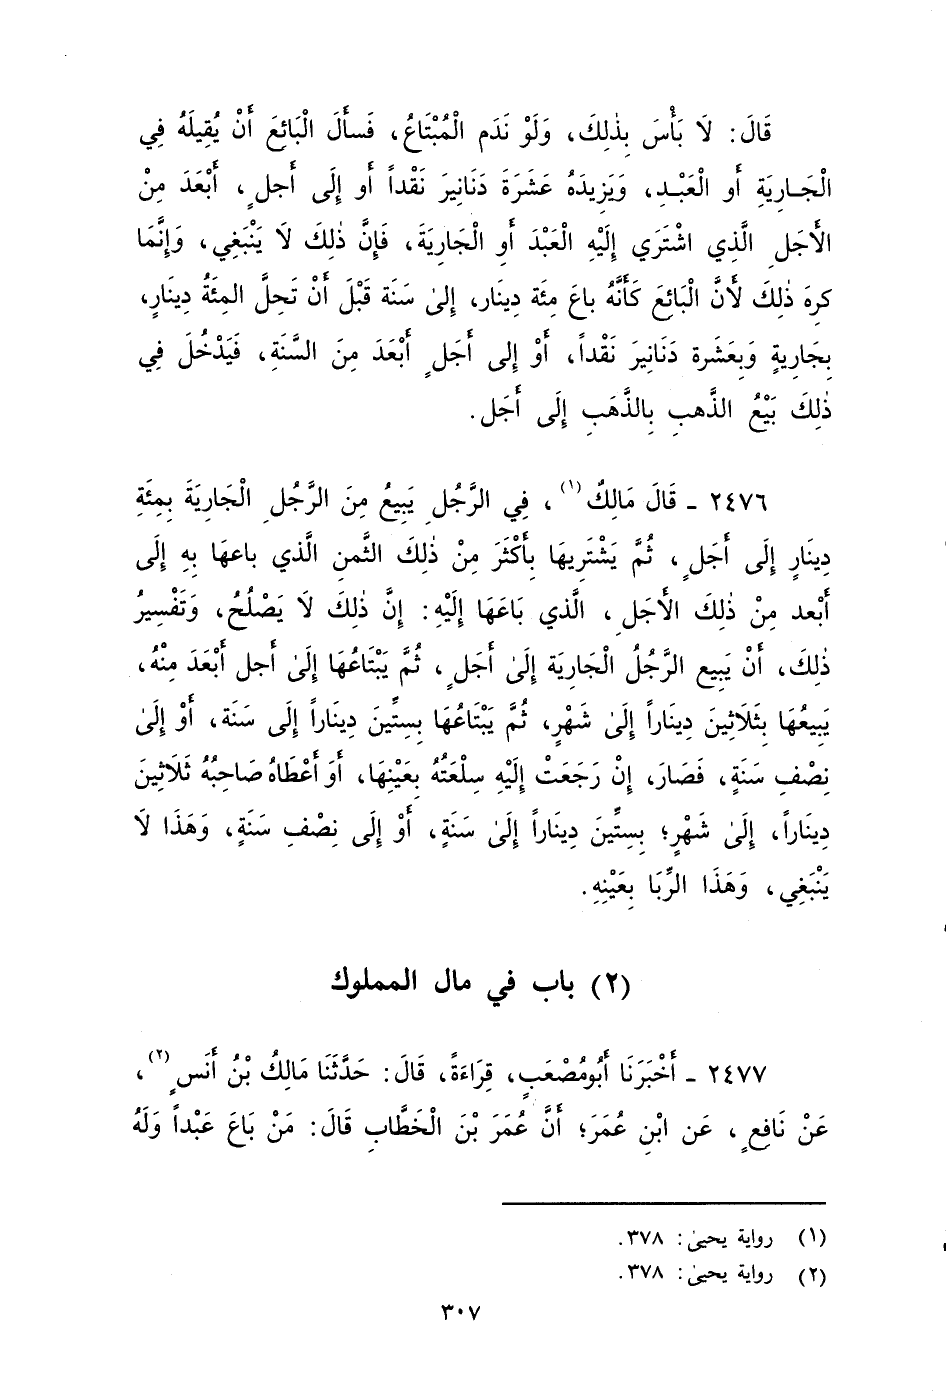 قَالَ: لَا بَأْسَ بِذٰلِكَ، وَلَوْ نَدَم الْمُبْتَاعُ، فَسأَلَ الْبَائِعَ أَنْ يُقِيلَهُ فِي
الْجَارِيَةِ أَو الْعَبْدِ، وَيَزِيدَهُ عَشَرَةَ دَنَانِيرَ نَقْداً أَو إِلَى أَجلٍ، أَبْعَدَ مِنْ
الأَجَلِ الَّذِي اشْتَرَي إِلَيْهِ الْعَبْدَ أَوِ الْجَارِيَةَ، فَإِنَّ ذٰلِكَ لَا يَنْبَغِي، وَإِنَّمَا
كرِهَ ذٰلِكَ لأَنَّ الْبَائِعَ كَأَنَّهُ باعَ مِئَة دِينَار، إِلىٰ سَنَة قَبْلَ أَنْ تَحِلَّ المِئَةُ دِينَارٍ،
بِجَارِيةٍ وَبِعَشَرة دَنَانِيرَ نَقْداً، أَوْ إِلى أَجَلٍ أَبْعَدَ مِنَ السَّنَةِ، فَيَدْخُلَ فِي
ذٰلِكَ بَيْعُ الذَّهبِ بِالذَّهَبِ إِلَى أَجَل.
٢٤٧٦ ـ قَالَ مَالِكٌ(١)، فِي الرَّجُلِ يَبِيعُ مِنَ الرَّجُلِ الْجَارِيَةَ بِمِئَةِ
دِينَارٍ إِلَى أَجَلٍ، ثُمَّ يَشْتَرِيهَا بِأَكْثَرَ مِنْ ذٰلِكَ الثَّمنِ الَّذي باعهَا بِهِ إِلَى
أَبْعد مِنْ ذٰلِكَ الأَجَلِ، الَّذي بَاعَهَا إِلَيْهِ: إِنَّ ذٰلِكَ لَا يَصْلُحُ، وَتَفْسِيرُ
ذٰلِكَ، أَنْ يَبِيع الرَّجُلُ الْجَارِيَة إِلَىٰ أَجَلٍ، ثُمَّ يَبْتَاعُهَا إِلَىٰ أَجلِ أَبْعَدَ مِنْهُ،
يَبِيعُهَا بِثَلَاثِينَ دِينَاراً إِلَىٰ شَهْرٍ، ثُمَّ يَبْتَاعُهَا بِستِّينَ دِينَاراً إِلَى سَنَة، أَوْ إِلَىٰ
نِصْفِ سَنَةٍ، فَصَارَ، إِنْ رَجَعَتْ إِلَيْهِ سِلْعَتُهُ بِعَيْنِهَا، أَوَ أَعْطَاهُ صَاحِبُهُ ثَلَاثِينَ
دِينَاراً، إِلَىٰ شَهْرٍ؛ بِسِتِّينَ دِينَاراً إِلَىٰ سَنَةٍ، أَوْ إِلَى نِصْفِ سَنَةٍ، وَهَذَا لَا
يَنْبَغِي، وَهَذَا الرِّبَا بِعَيْنِهِ.
(٢) باب في مال المملوك
٢٤٧٧ ـ أَخْبَرَنَا أَبُومُصْعَبٍ، قِرَاءَةً، قَالَ: حَدَّثَنَا مَالِكُ بْنُ أَنَسٍ(٢)،
عَنْ نَافِعٍ، عَنِ ابْنِ عُمَرَ؛ أَنَّ عُمَرَ بْنَ الْخَطَّابِ قَالَ: مَنْ بَاعَ عَبْداً وَلَهُ
(١) رواية يحيىٰ: ٣٧٨.
(٢) رواية يحيىٰ: ٣٧٨.
٣٠٧